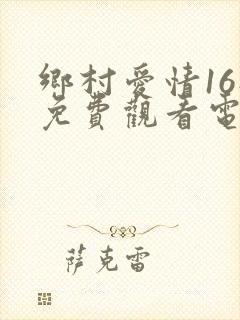 鄉村愛情16
免費觀看電
萨克雷